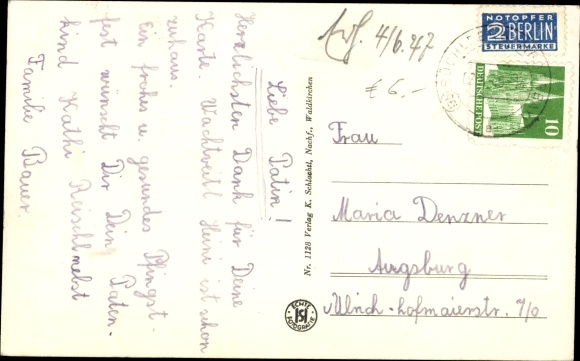 Liebe Patin!
Herzlichsten Dank für Deine
Karte. Wachtveitl Heini ist schon
zuhaus.
Ein frohes u. gesundes Pfingst-
fest wünscht Dir Dein Paten-
kind Kathi Reischl nebst
Familie Bauer.
4/6.47
€ 6.-
NOTOPFER
2 BERLIN
STEUERMARKE
DEUTSCHE POST
10
Nr. 1128 Verlag K. Schlechtl, Nachf., Waldkirchen
ECHTE
FOTOGRAFIE
Frau
Maria Denzner
Augsburg
Ulrich-hofmaierstr. 7/0